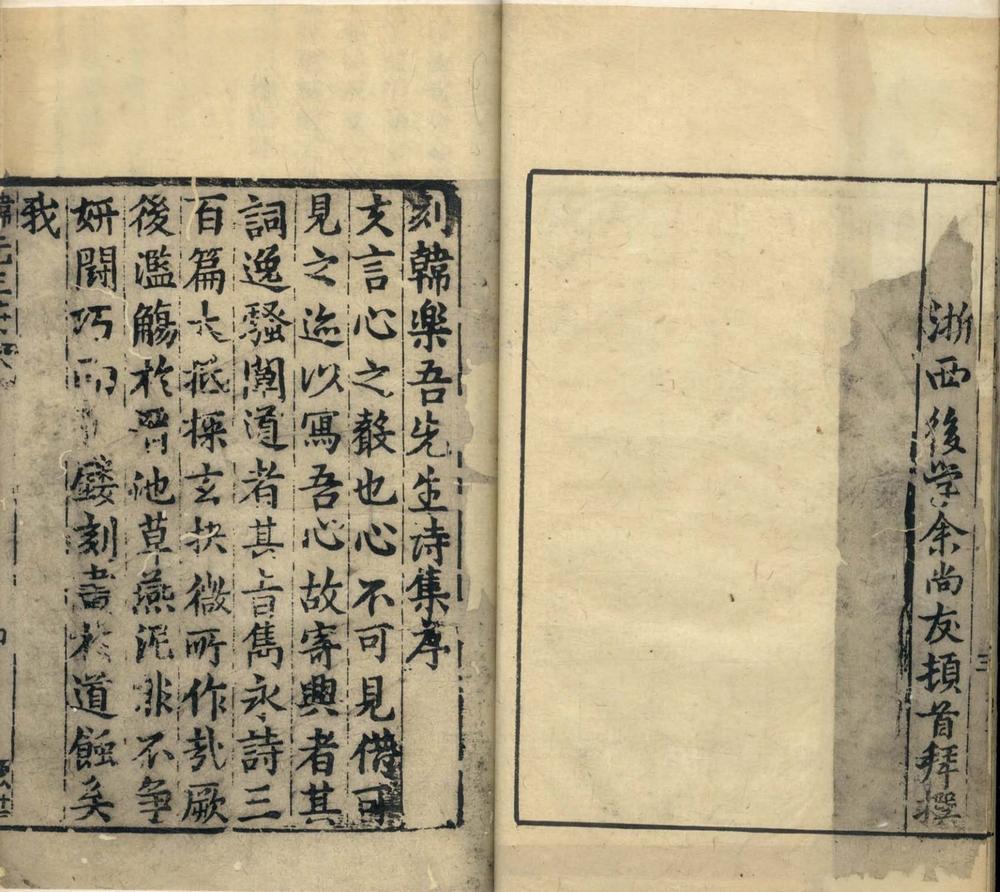 浙西後学余尚友頓首拜撰
三
刻韓樂吾先生诗集序
文言心之聲也心不可見借可
見之迹以寫吾心故寄興者其
詞逸騷闡道者其旨雋永詩三
百篇大抵探玄抉微所作哉厥
後濫觴於晋池草燕泥非不争
妍鬪巧而鏤刻書於道蝕矣
我